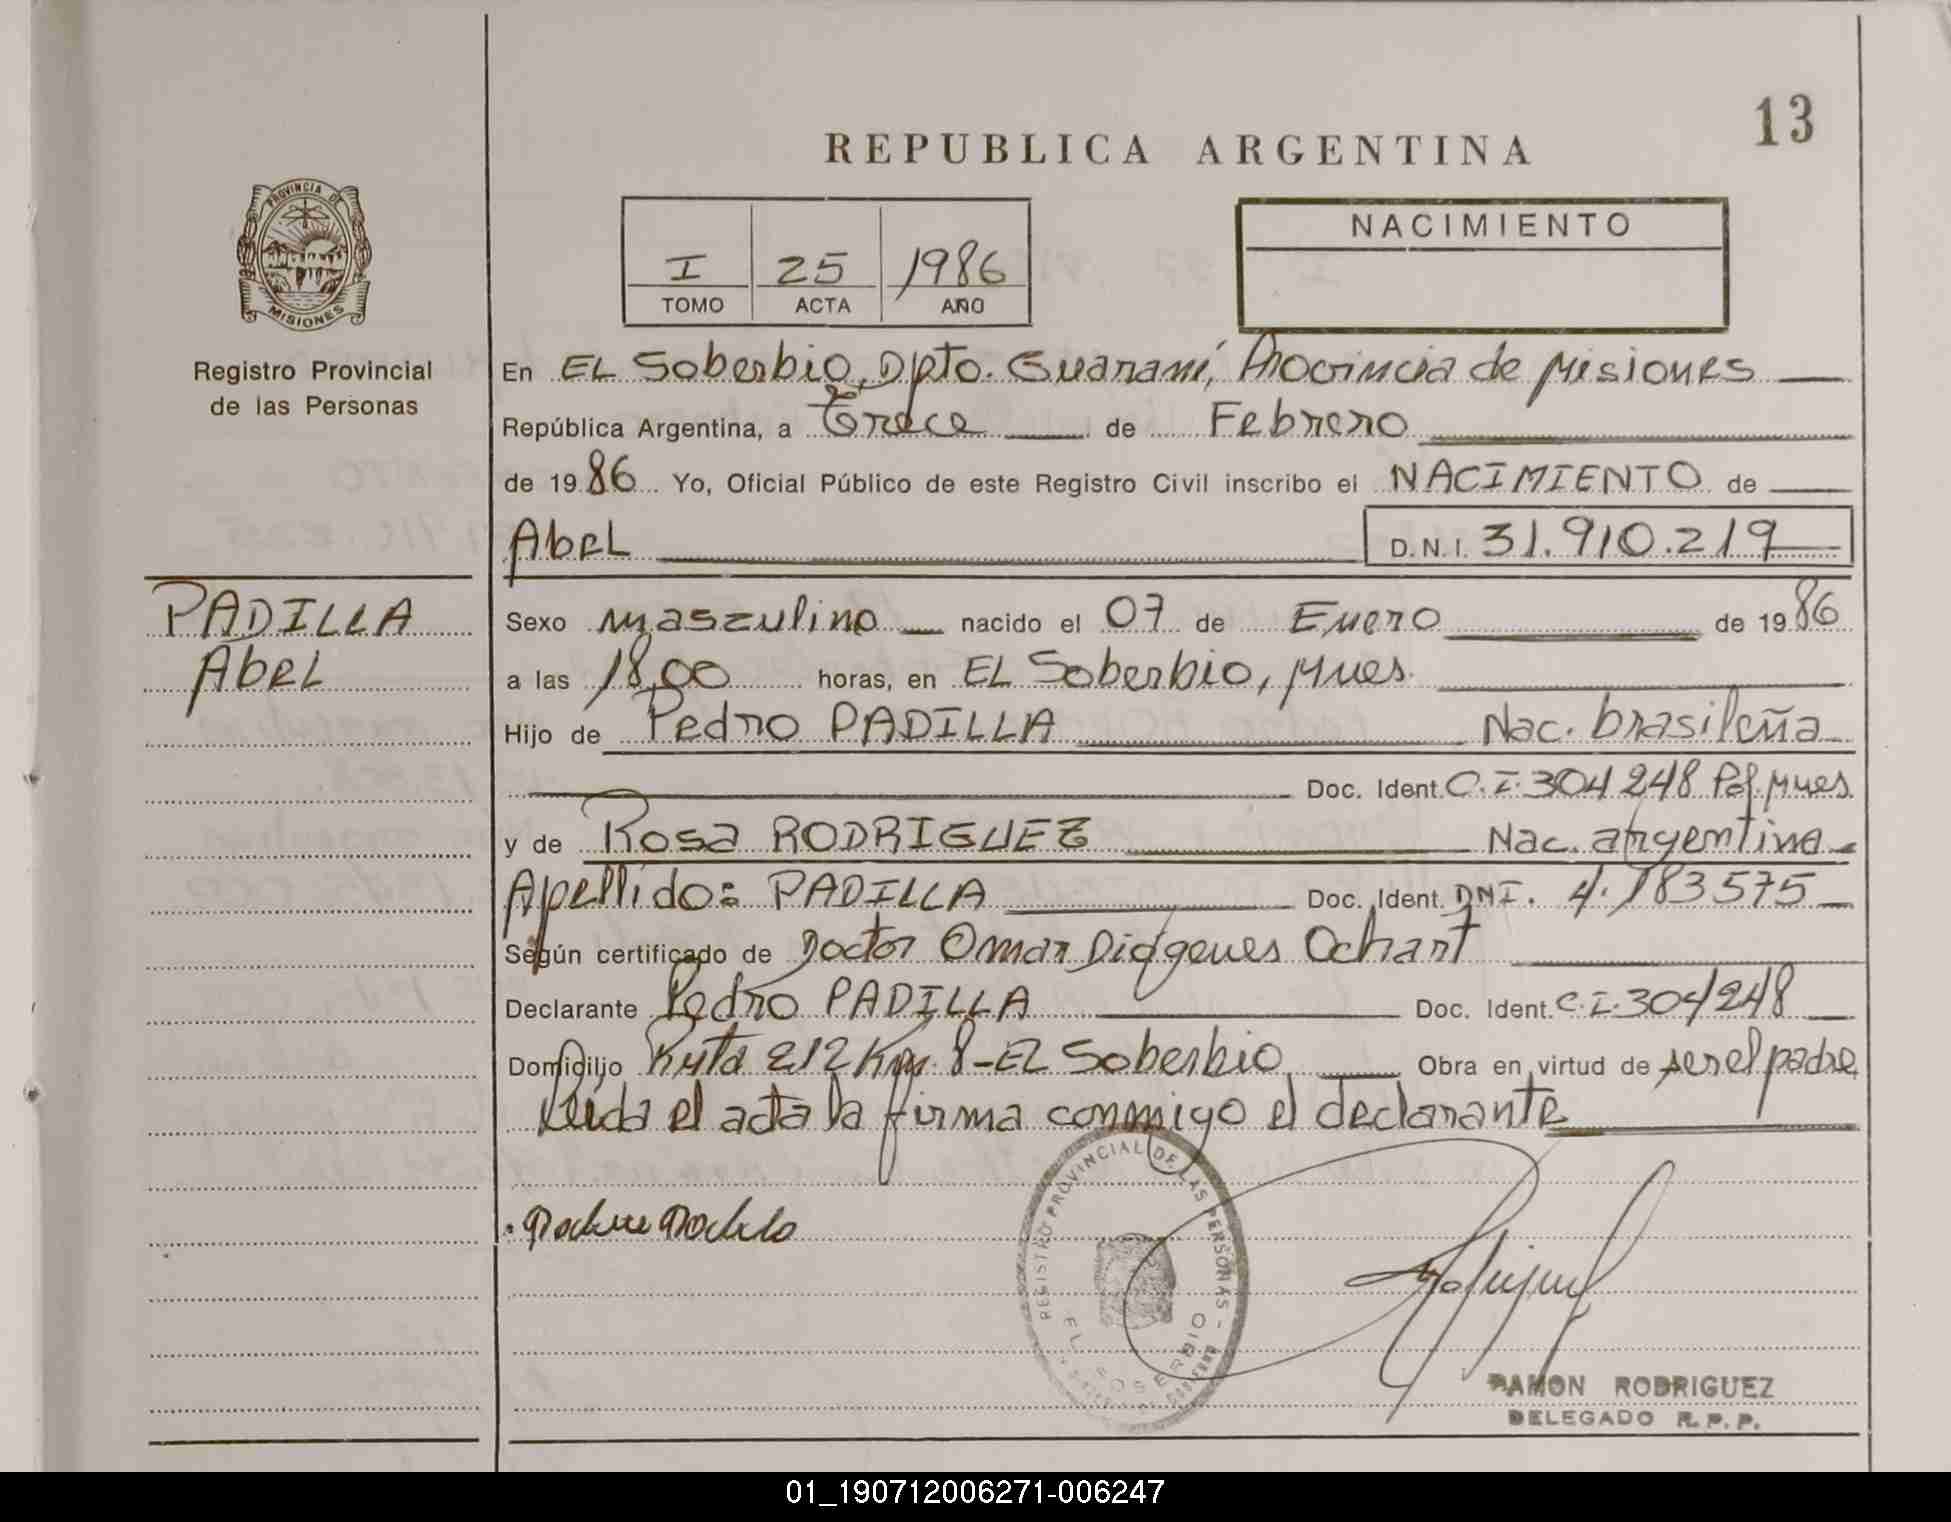 13
REPUBLICA ARGENTINA
PROVINCIA DE
MISIONES
Registro Provincial
de las Personas
I 25 1986
TOMO ACTA AÑO
NACIMIENTO
En EL Soberbio, Dpto. Guaraní, Provincia de Misiones
República Argentina, a Trece de Febrero
de 1986 Yo, Oficial Público de este Registro Civil inscribo el NACIMIENTO de
Abel D.N.I. 31.910.219
PADILLA
Abel
Sexo masculino nacido el 07 de Enero de 1986
a las 18,00 horas, en EL Soberbio, Mnes.
Hijo de Pedro PADILLA Nac. brasileña
Doc. Ident. C.I. 304248 Pol. Mnes
y de Rosa RODRIGUEZ Nac. argentina
Apellido: PADILLA Doc. Ident. DNI. 4.183575
Según certificado de Doctor Omar Diógenes Ochart
Declarante Pedro PADILLA Doc. Ident. C.I. 304248
Domicilio Ruta 212 Km. 8-EL Soberbio Obra en virtud de ser el padre
Leida el acta la firma conmigo el declarante
REGISTRO PROVINCIAL DE LAS PERSONAS
EL SOBERBIO
RAMON RODRIGUEZ
DELEGADO R.P.P.
01_190712006271-006247